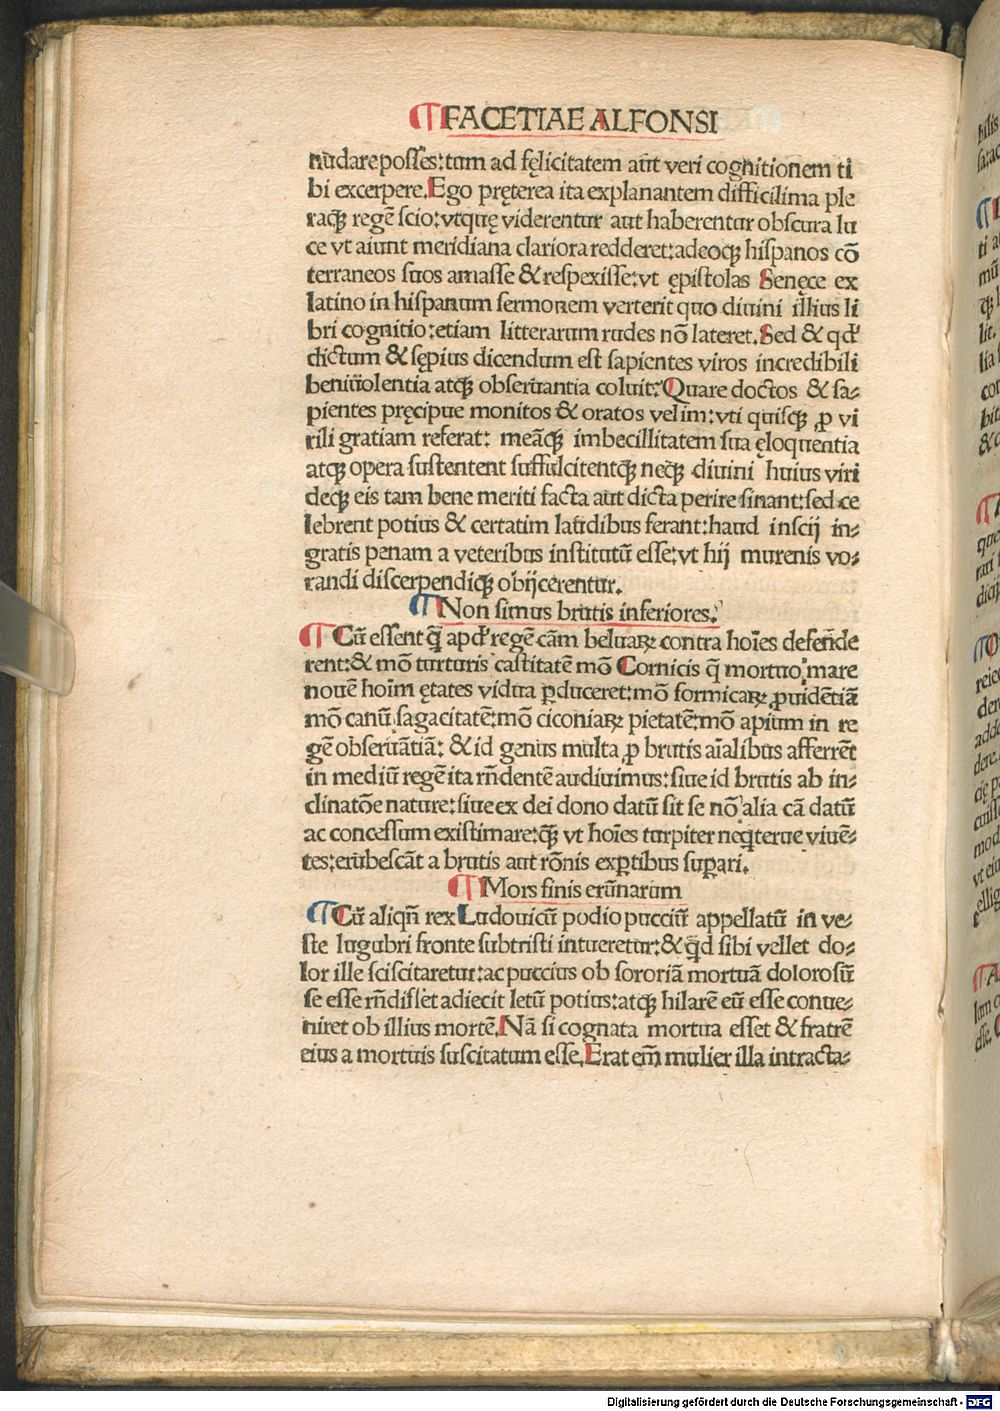 ¶FACETIAE ALFONSI
nudare posses: tum ad fęlicitatem aut veri cognitionem ti
bi excerpere. Ego pręterea ita explanantem difficilima ple
raqꝫ regẽ scio: vtquę viderentur aut haberentur obscura lu
ce vt aiunt meridiana clariora redderet: adeoqꝫ hispanos cõ
terraneos suos amasse & respexisse: vt ępistolas Senęce ex
latino in hispanum sermonem verterit quo diuini illius li
bri cognitio: etiam litterarum rudes nõ lateret. Sed & qđ
dictum & sępius dicendum est sapientes viros incredibili
beniuolentia atqꝫ obseruantia coluit: Quare doctos & sa-
pientes pręcipue monitos & oratos velim: vti quisqꝫ ꝓ vi
rili gratiam referat: meãqꝫ imbecillitatem sua ęloquentia
atqꝫ opera sustentent suffulcitentqꝫ neqꝫ diuini huius viri
deqꝫ eis tam bene meriti facta aut dicta perire sinant: sed ce
lebrent potius & certatim laudibus ferant: haud inscij in-
gratis penam a veteribus institutũ esse: vt hij murenis vo-
randi discerpendiqꝫ obijcerentur.
¶Non simus brutis inferiores.
¶Cũ essent q̃ apđ regẽ cãm beluaꝝ contra hoĩes defende
rent: & mõ turturis castitatẽ mõ Cornicis q̃ mortuo mare
nouẽ hoĩm ętates vidua ꝑduceret: mõ formicaꝝ ꝓuidẽtiã
mõ canũ sagacitatẽ: mõ ciconiaꝝ pietatẽ: mõ apium in re
gẽ obseruãtiã: & id genus multa ꝓ brutis aĩalibus afferrẽt
in mediũ regẽ ita rñdentẽ audiuimus: siue id brutis ab in-
clinatõe nature: siue ex dei dono datũ sit se nõ alia cã datũ
ac concessum existimare: qꝫ vt hoĩes turpiter neq̃terue viuẽ-
tes: erubescãt a brutis aut rõnis exꝑtibus suꝑari.
¶Mors finis erũnarum
¶Cũ aliqñ rex Ludouicũ podio pucciũ appellatũ in ve-
ste lugubri fronte subtristi intueretur: & q̃d sibi vellet do-
lor ille sciscitaretur: ac puccius ob sororiã mortuã dolorosũ
se esse rñdisset adiecit letũ potius: atqꝫ hilarẽ eũ esse conue-
niret ob illius mortẽ. Nã si cognata mortua esset & fratrẽ
eius a mortuis suscitatum esse. Erat em̃ mulier illa intracta-
Digitalisierung gefördert durch die Deutsche Forschungsgemeinschaft - DFG